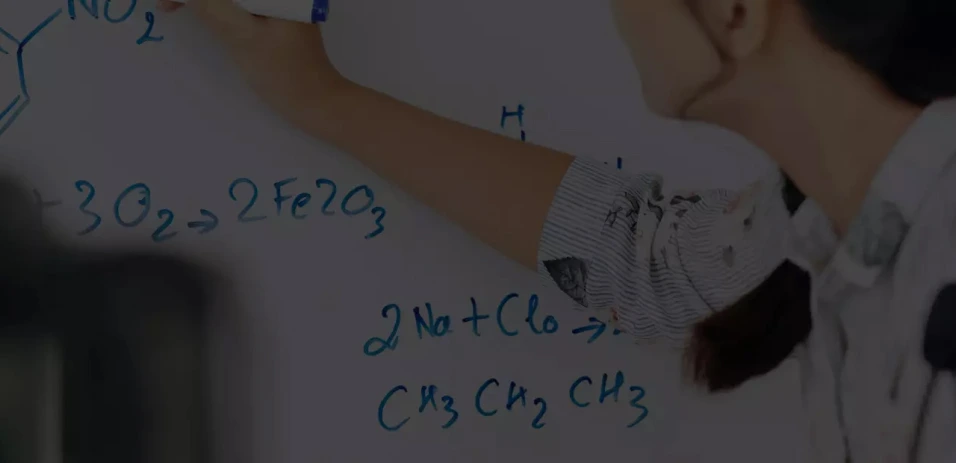 NO₂
H
+ 3O₂ → 2Fe2O₃
2Na + Clo →
CH₃ CH₂ CH₃